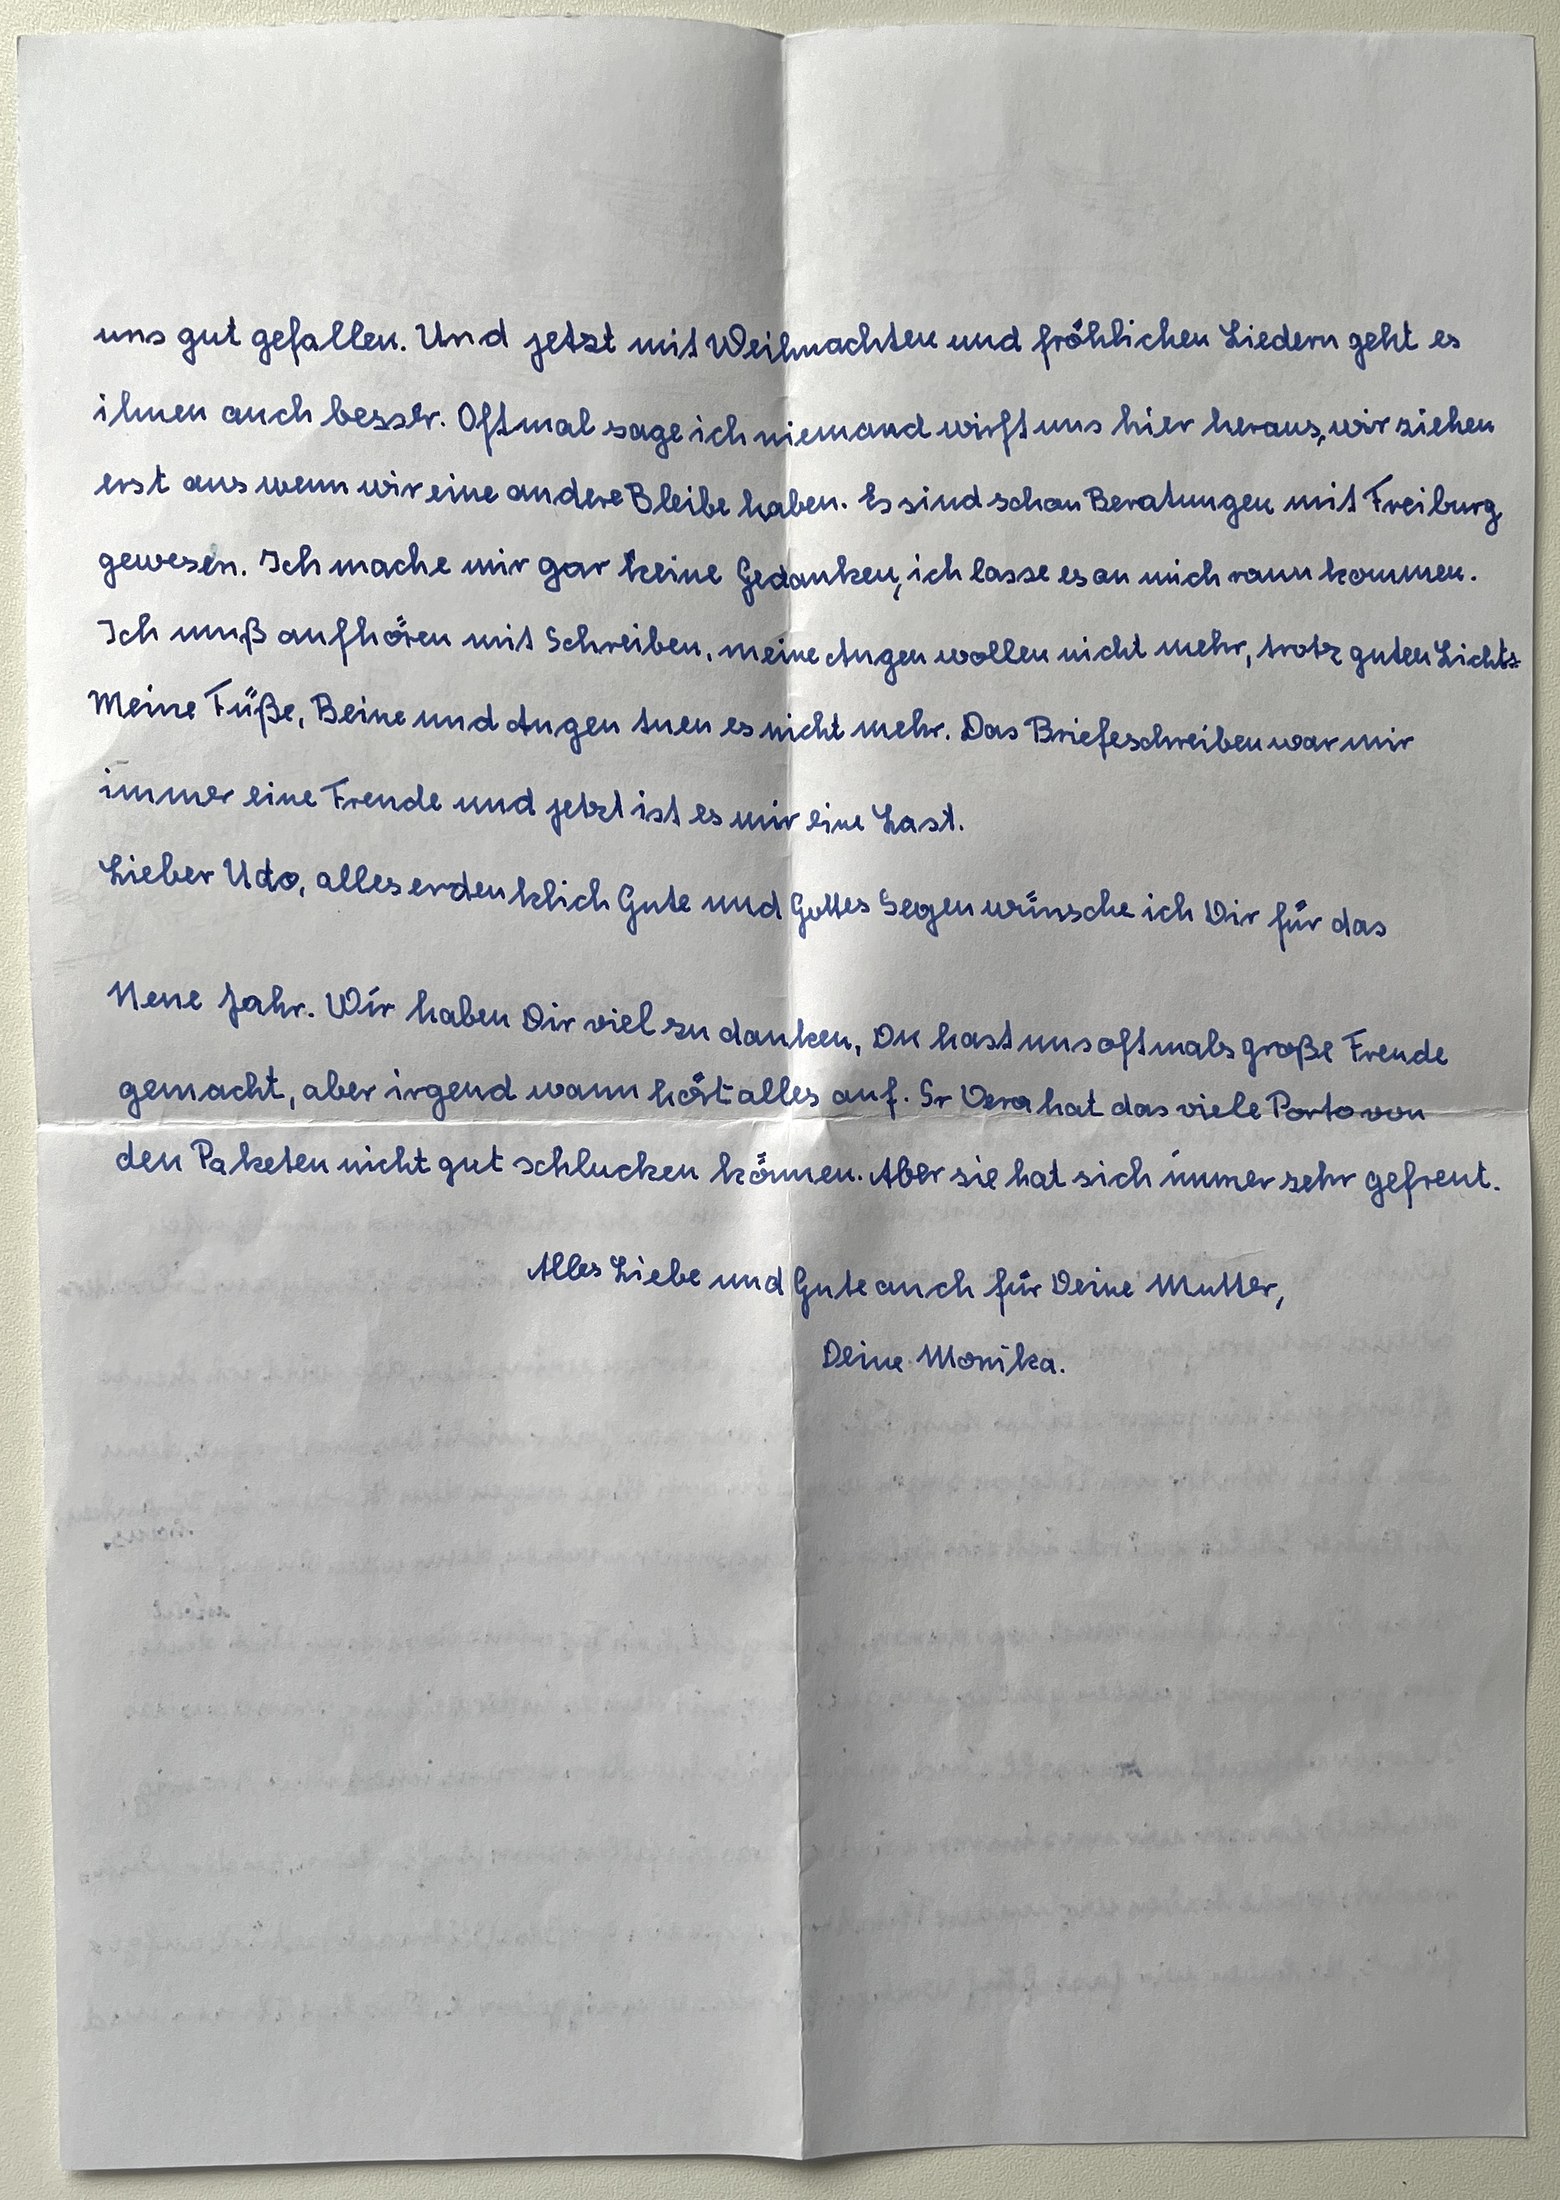 uns gut gefallen. Und jetzt mit Weihnachten und fröhlichen Liedern geht es
ihnen auch besser. Oftmal sage ich niemand wirft uns hier heraus, wir ziehen
erst aus wenn wir eine andere Bleibe haben. Es sind schon Beratungen mit Freiburg
gewesen. Ich mache mir gar keine Gedanken, ich lasse es an mich rann kommen.
Ich muß aufhören mit Schreiben, meine Augen wollen nicht mehr, trotz guten Lichts.
Meine Füße, Beine und Augen tuen es nicht mehr. Das Briefeschreiben war mir
immer eine Freude und jetzt ist es mir eine Last.
Lieber Udo, alles erdenklich Gute und Gottes Segen wünsche ich Dir für das
Neue Jahr. Wir haben Dir viel zu danken, Du hast uns oftmals große Freude
gemacht, aber irgend wann hört alles auf. Sr Vera hat das viele Porto von
den Paketen nicht gut schlucken können. Aber sie hat sich immer sehr gefreut.
Alles Liebe und Gute auch für Deine Mutter,
Deine Monika.